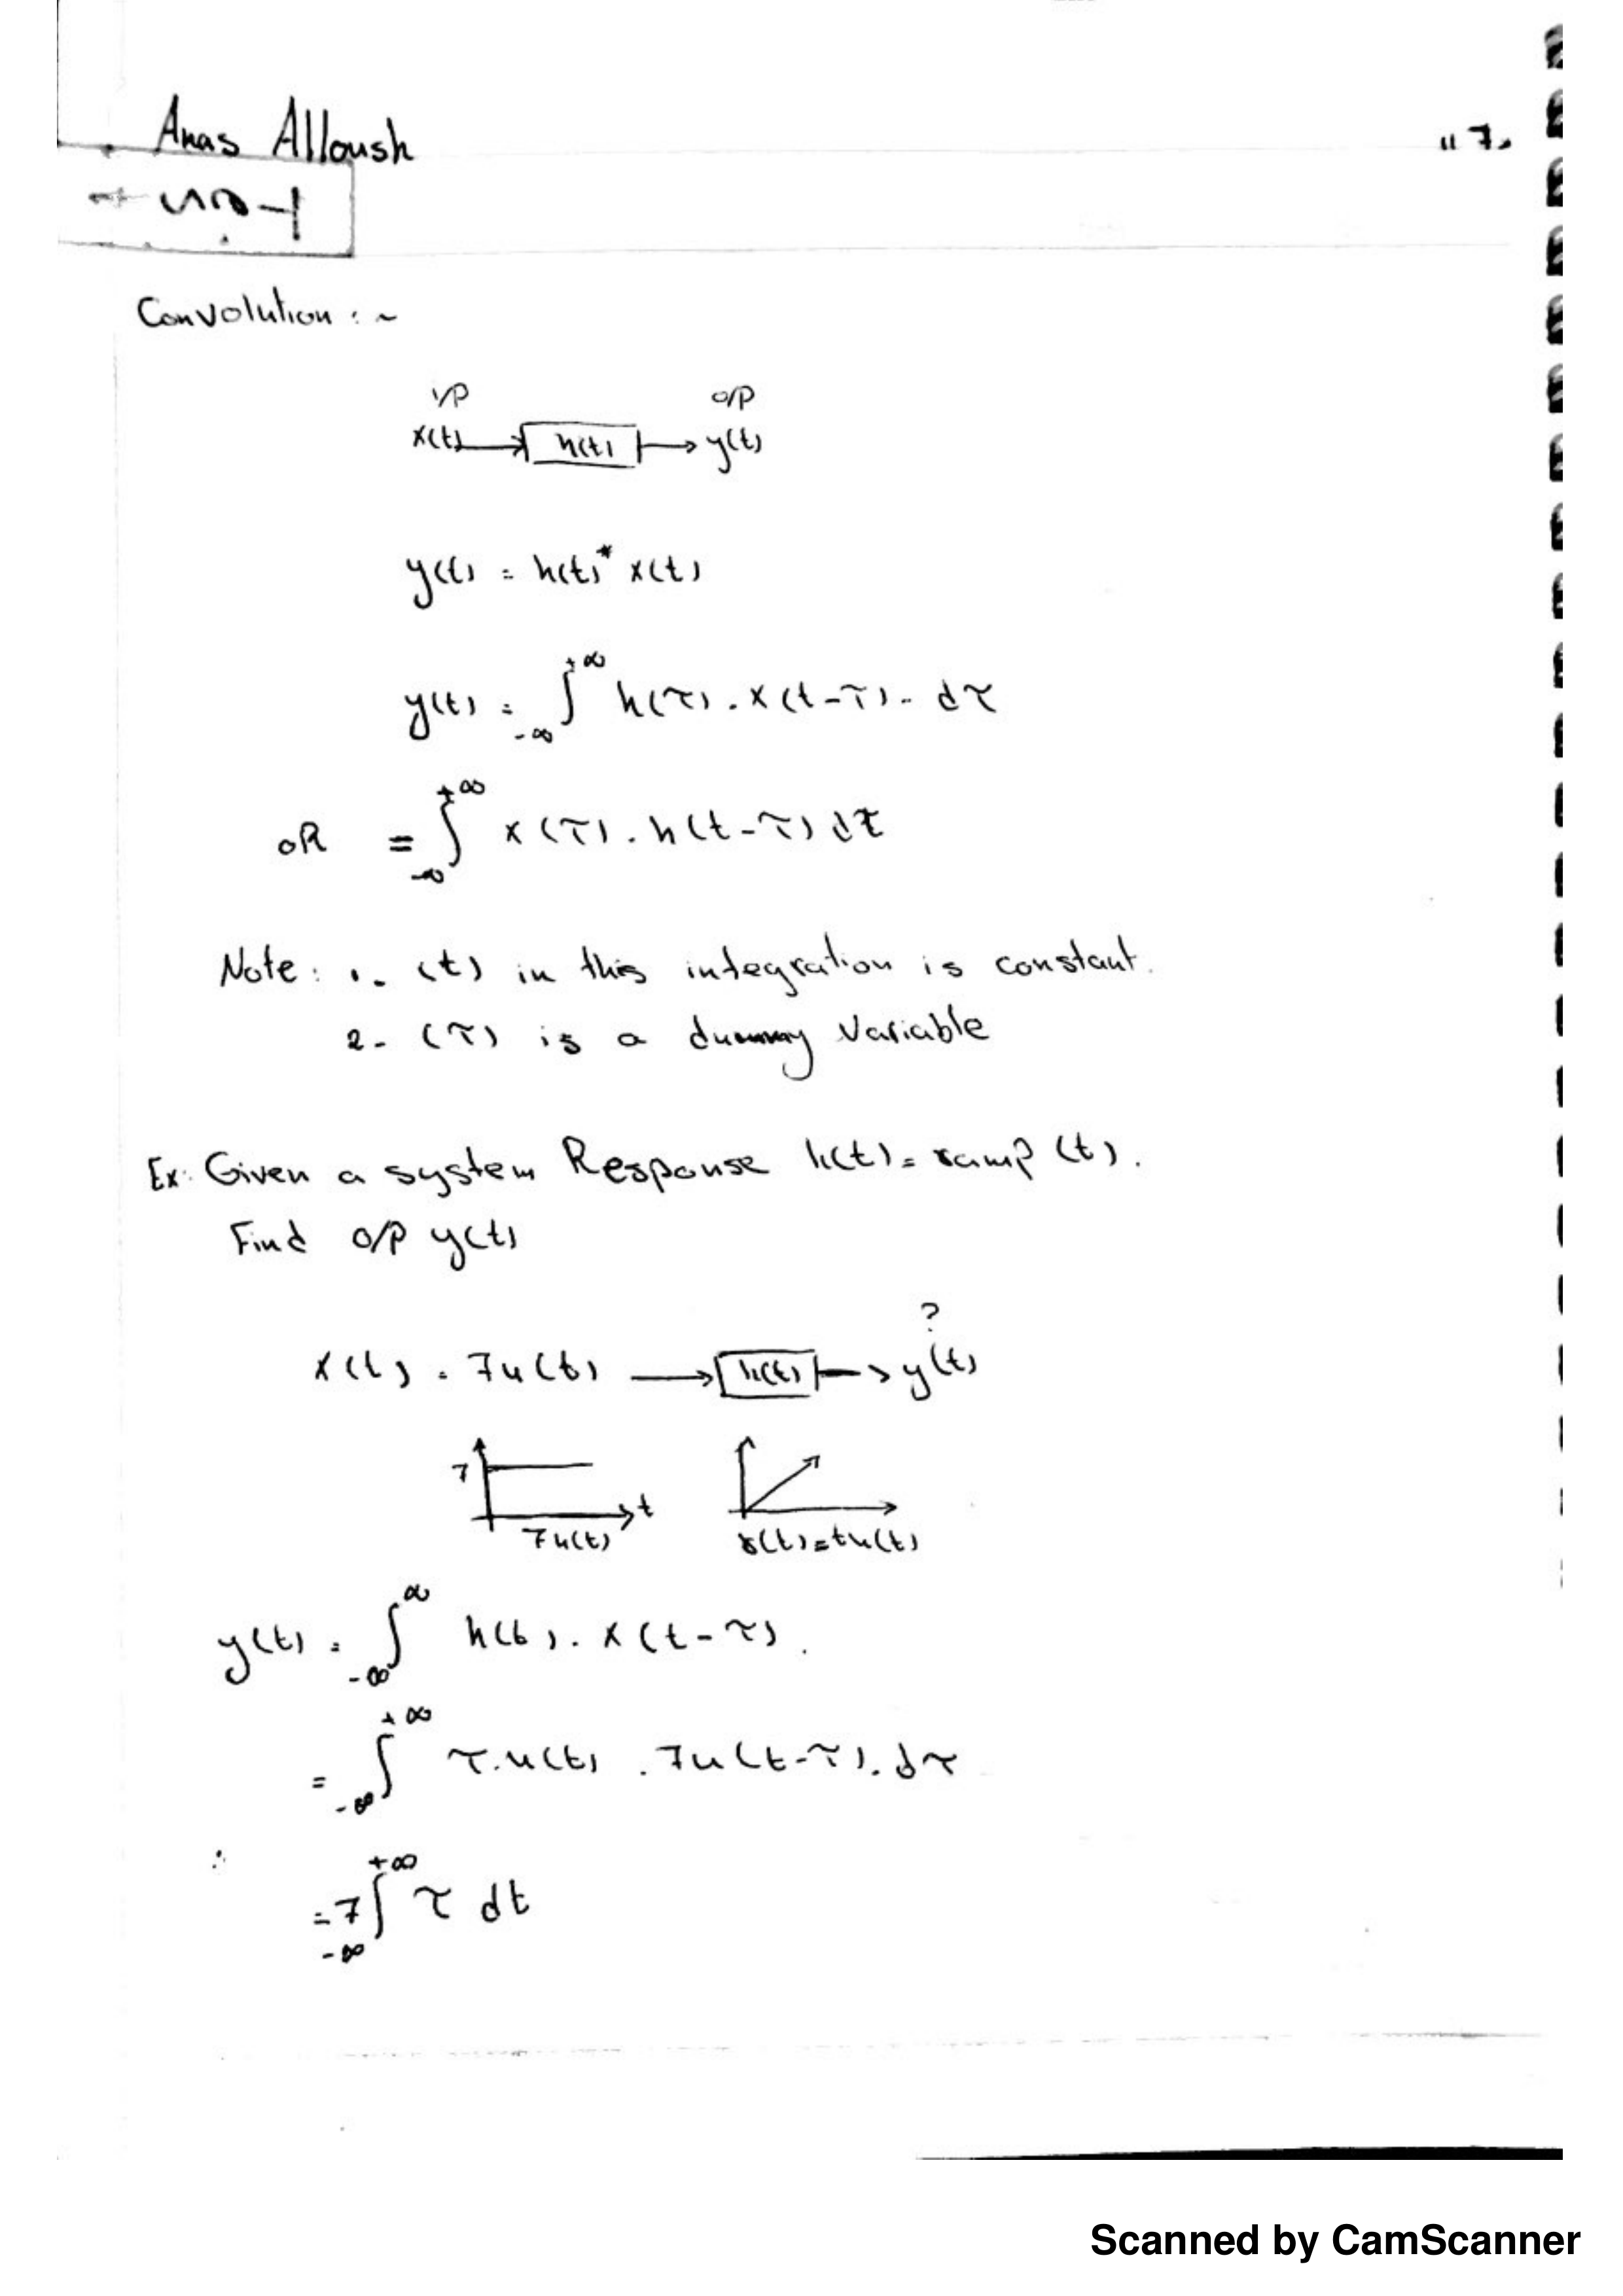 Anas Alloush
"7"
Convolution :~
i/p o/p
x(t) h(t) y(t)
y(t) = h(t) * x(t)
y(t) = ∫ -∞ +∞ h(τ) . x(t-τ) . dτ
OR = ∫ -∞ +∞ x(τ) . h(t-τ) dτ
Note: 1- (t) in this integration is constant.
2- (τ) is a dummy variable
Ex: Given a system Response h(t) = ramp (t).
Find o/p y(t)
?
x(t) = 7u(t) h(t) y(t)
7 t
7u(t) r(t)=tu(t)
y(t) = ∫ -∞ ∞ h(t) . x(t-τ) .
= ∫ -∞ +∞ τ.u(t) . 7u(t-τ). dτ
∴
=7 ∫ -∞ +∞ τ dt
Scanned by CamScanner